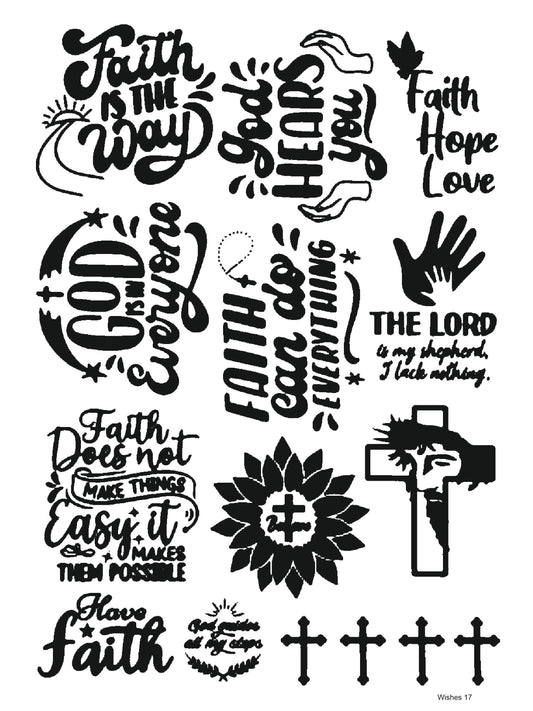 Faith
IS THE
Way
God
HEARS
you
Faith
Hope
Love
GOD
IS IN
Everyone
FAITH
can do
EVERYTHING
THE LORD
is my shepherd,
I lack nothing.
Faith
Does not
MAKE THINGS
Easy it
MAKES
THEM POSSIBLE
Believe
Have
Faith
God guides
all my steps
Wishes 17